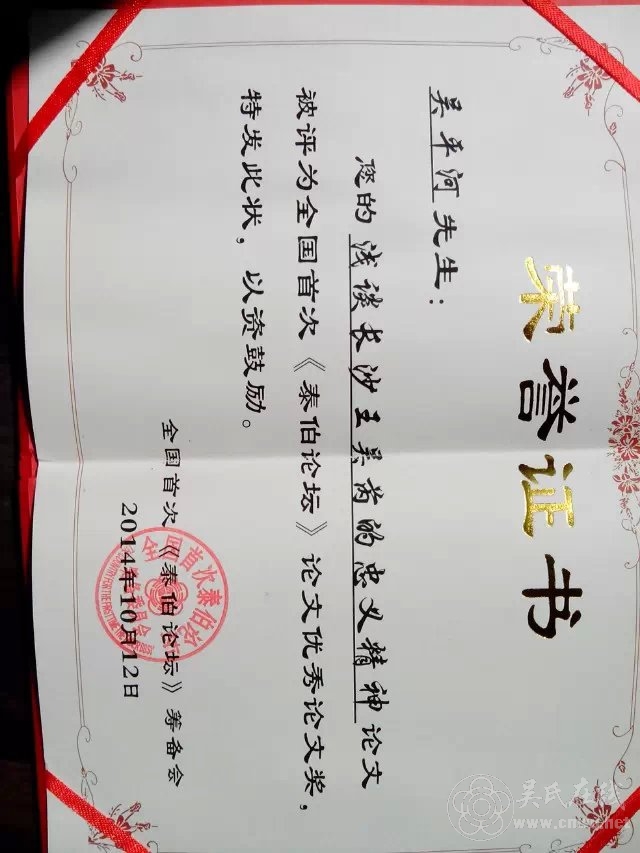 荣誉证书
吴平河先生：
您的浅谈长沙王吴芮的忠义精神论文
被评为全国首次《泰伯论坛》论文优秀论文奖，
特发此状，以资鼓励。
全国首次《泰伯论坛》筹备会
2014年10月12日
吴氏在线